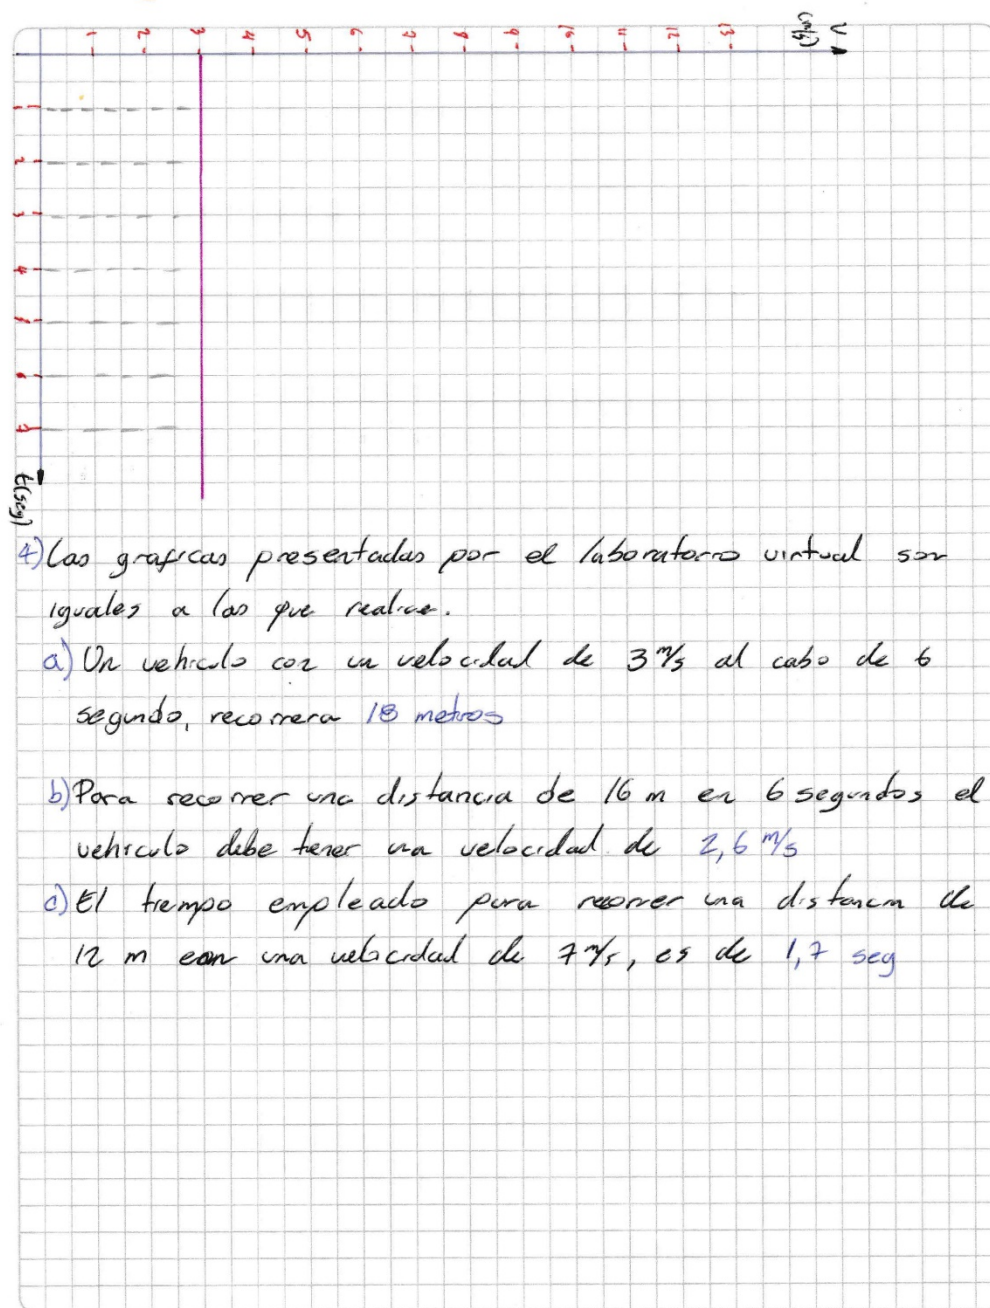 1 2 3 4 5 6 7 8 9 10 11 12 13
V
(m/s)
1
2
3
4
5
6
7
t(seg)
4) Las graficas presentadas por el laboratorio virtual son
iguales a las que realice.
a) Un vehiculo con un velocidad de 3 m/s al cabo de 6
segundo, recorrera 18 metros
b) Para recorrer una distancia de 16 m en 6 segundos el
vehiculo debe tener una velocidad de 2,6 m/s
c) El tiempo empleado para recorrer una distancia de
12 m con una velocidad de 7 m/s, es de 1,7 seg